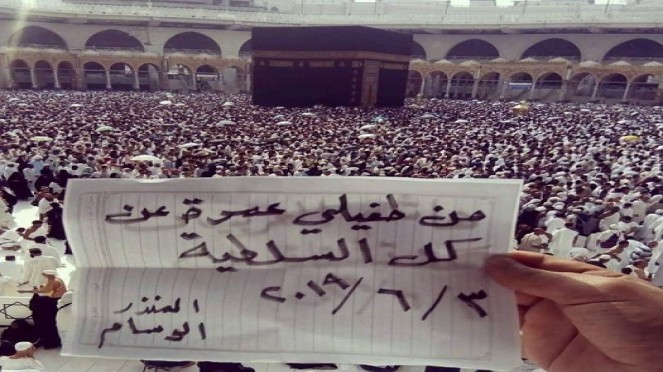 من طفيلي عمرة عن
كل السلطية
٢٠١٩/٦/٣
المنذر
الوسام